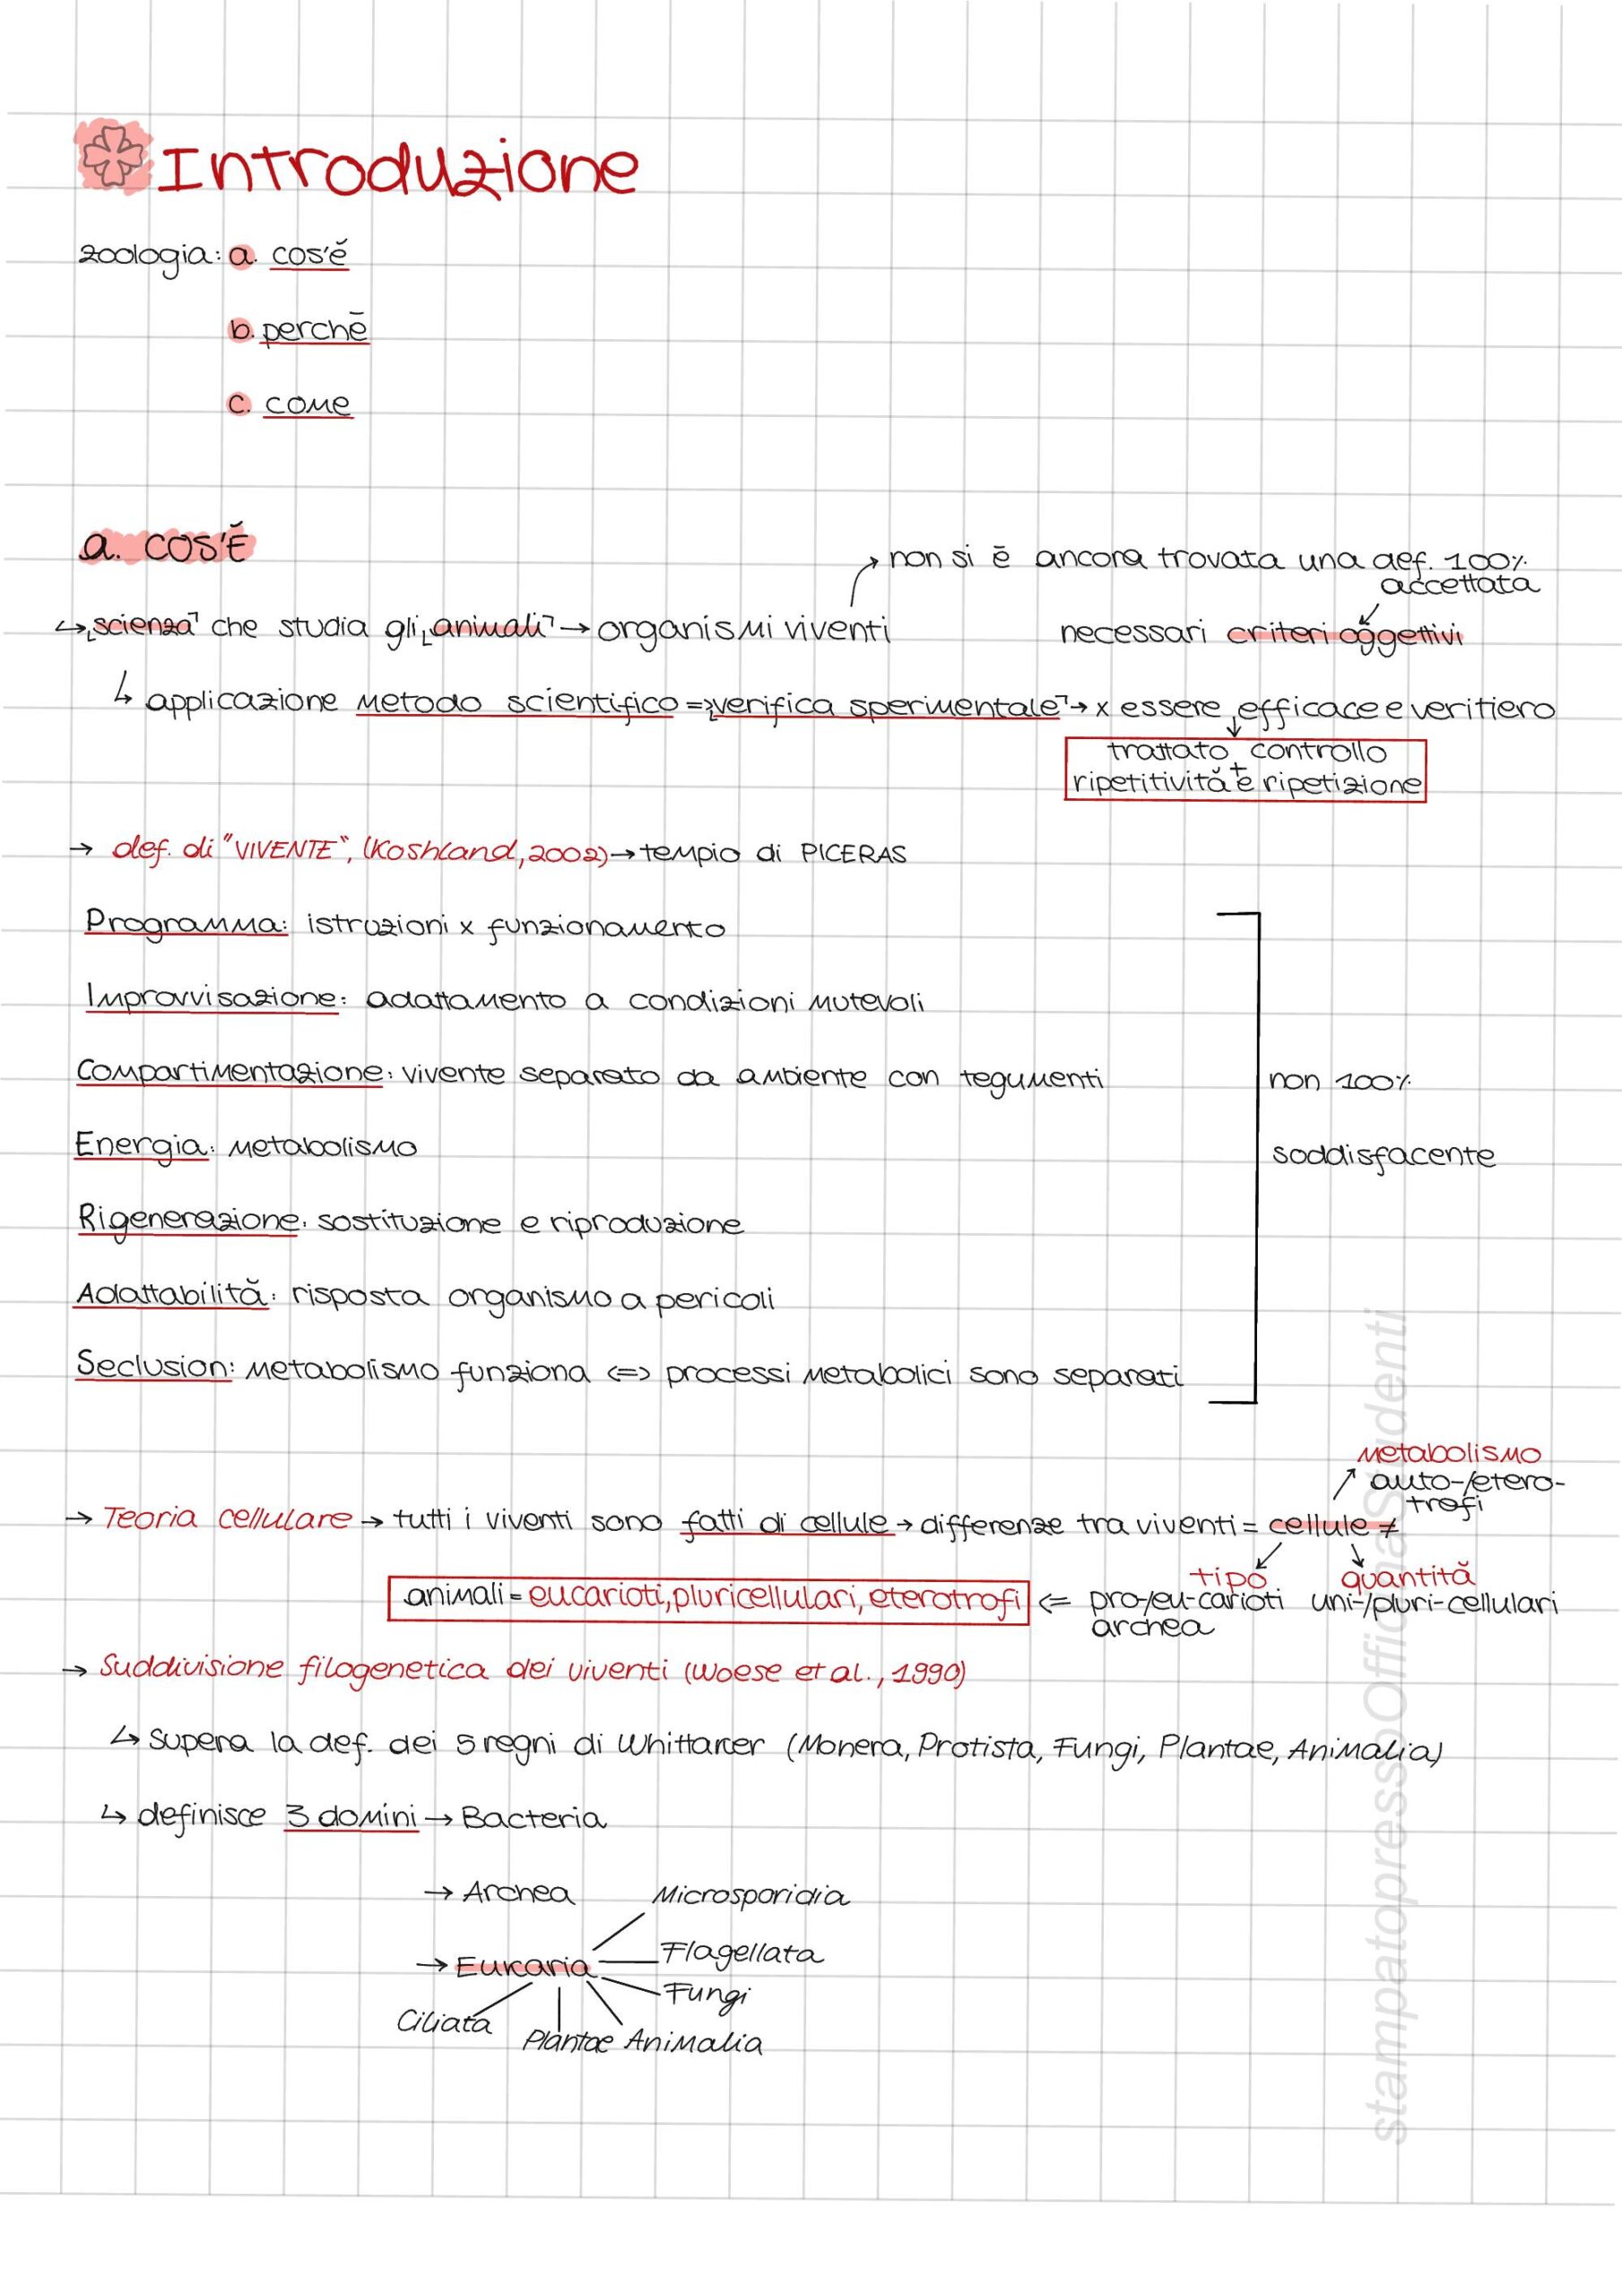 Introduzione
zoologia: a. cos'è
b. perchè
c. come
a. COS'È
non si è ancora trovata una def. 100%
accettata
↳ "scienza" che studia gli "animali" → organismi viventi
necessari criteri oggettivi
↳ applicazione metodo scientifico => "verifica sperimentale" → x essere efficace e veritiero
trattato + controllo
ripetitività e ripetizione
→ def. di "VIVENTE", (Koshland, 2002) → tempio di PICERAS
Programma: istruzioni x funzionamento
Improvvisazione: adattamento a condizioni mutevoli
Compartimentazione: vivente separato da ambiente con tegumenti
non 100%
Energia: metabolismo
soddisfacente
Rigenerazione: sostituzione e riproduzione
Adattabilità: risposta organismo a pericoli
Seclusion: metabolismo funziona <=> processi metabolici sono separati
metabolismo
auto-/etero-
trofi
→ Teoria cellulare → tutti i viventi sono fatti di cellule → differenze tra viventi = cellule ≠
tipo quantità
animali = eucarioti, pluricellulari, eterotrofi <= pro-/eu-carioti uni-/pluri-cellulari
archea
→ Suddivisione filogenetica dei viventi (Woese et al., 1990)
↳ supera la def. dei 5 regni di Whittaker (Monera, Protista, Fungi, Plantae, Animalia)
↳ definisce 3 domini → Bacteria
→ Archea Microsporidia
→ Eukaria Flagellata
Fungi
Ciliata
Plantae Animalia
stampatopressoOfficinaStudenti